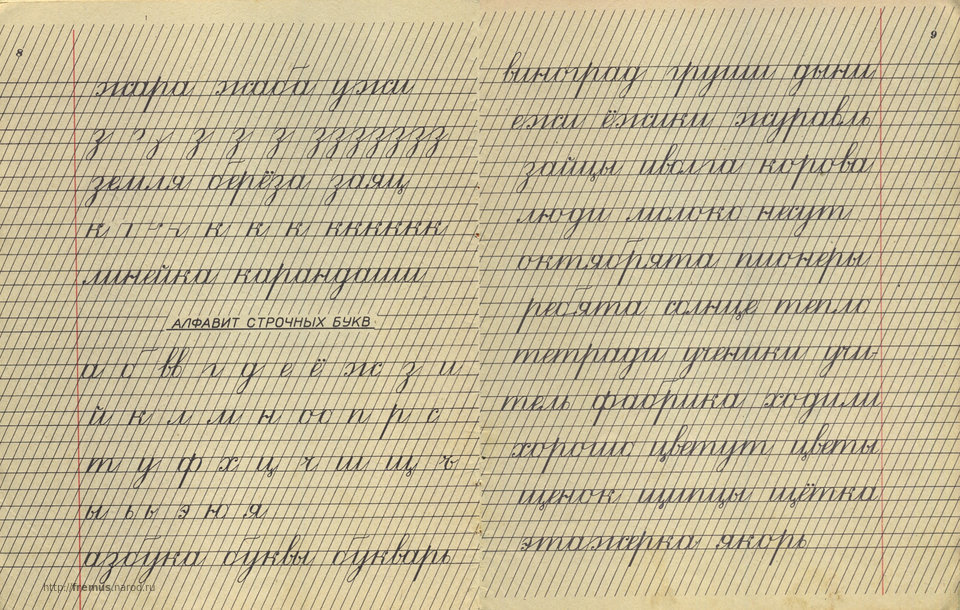 8
жара жаба ужи
з з з з з ззззззз
земля берёза заяц
к к к к кккккк
линейка карандаши
АЛФАВИТ СТРОЧНЫХ БУКВ
а б вв г д е ё ж з и
й к л м н оо п р с
т у ф х ц ч ш щ ъ
ы ь ь э ю я
азбука буквы букварь
http://fremus.narod.ru
9
виноград груши дыни
ежи ёжики журавль
зайцы иволга корова
люди молоко несут
октябрята пионеры
ребята солнце тепло
тетради ученики учи-
тель фабрика ходили
хорошо цветут цветы
щенок щипцы щётка
этажерка якорь